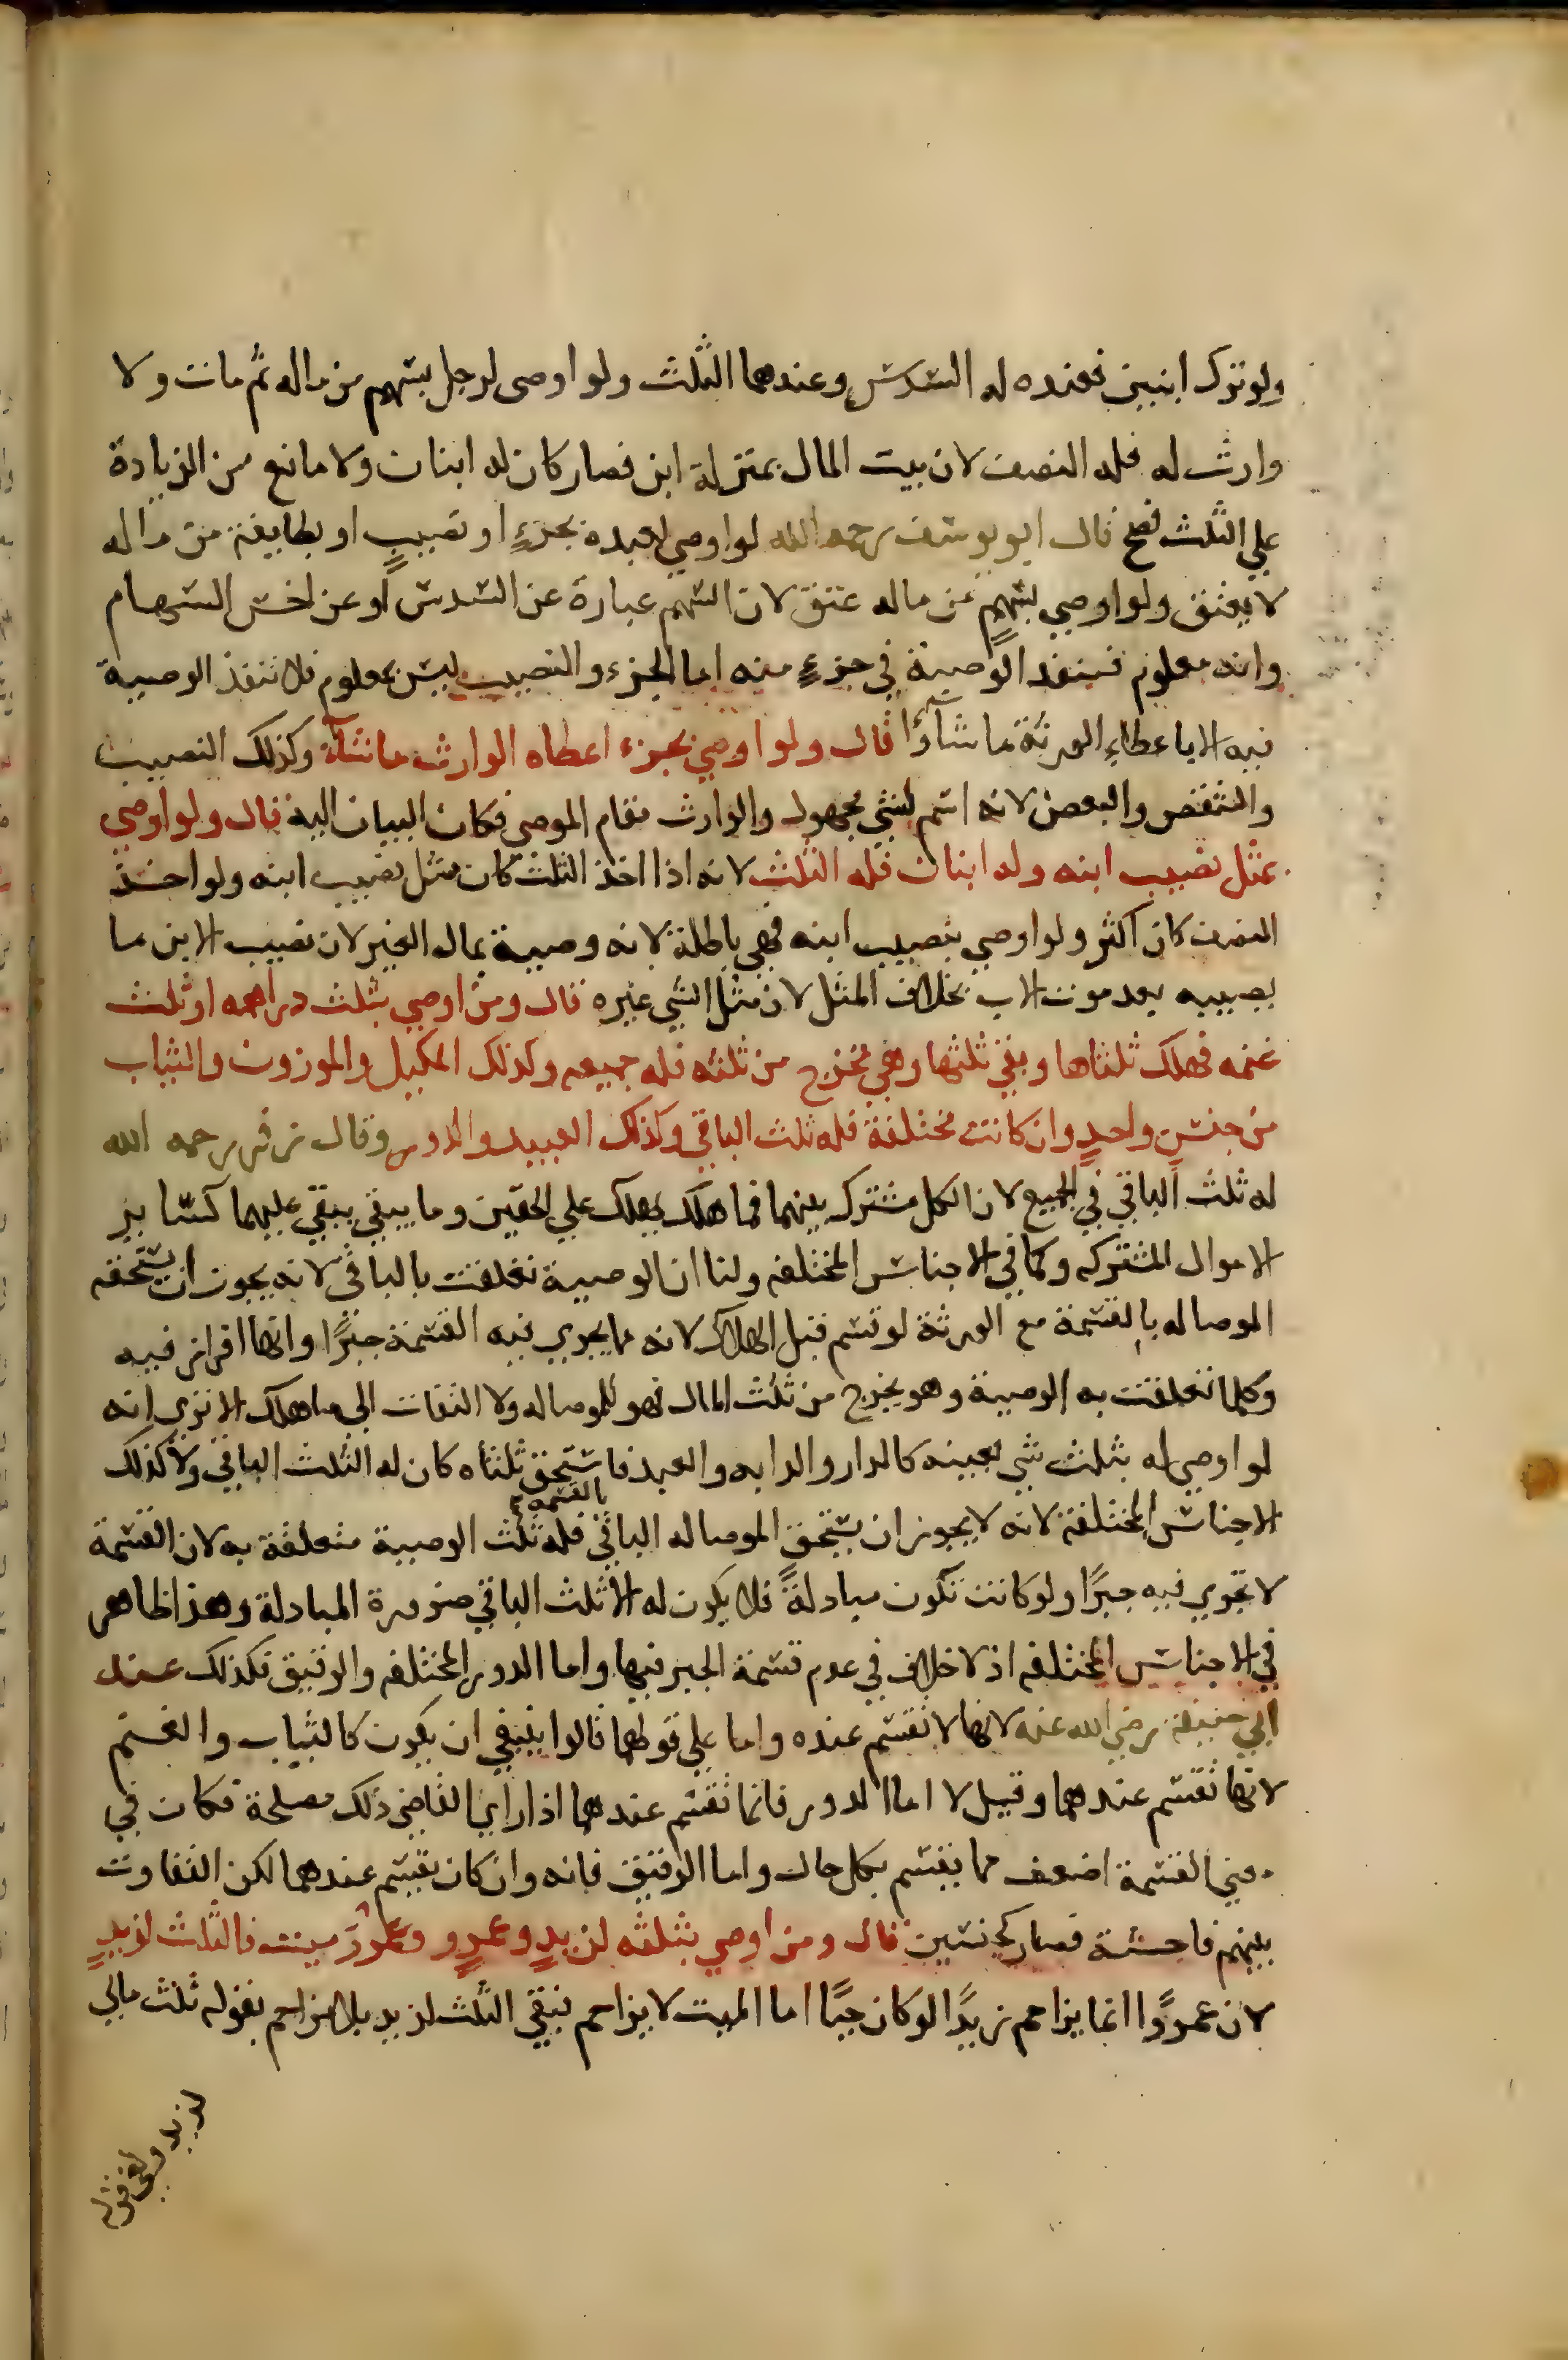 ولو ترك ابنين فعنده له السدس وعندهما الثلث ولو اوصى لرجل بسهم من ماله ثم مات ولا
وارث له فله النصف لان بيت المال بمنزلة ابن فصار كان له ابنان ولا مانع من الزيادة
علي الثلث فصح قال ابو يوسف رحمه الله لو اوصي لعبده بجزءٍ او نصيبٍ او بطايفة من ماله
لا يعتق ولو اوصي بسهمٍ من ماله عتق لان السهم عبارة عن السدس او عن اخس السهام
وانه معلوم فينفد الوصية في جزءٍ منه اما الجزء والنصيب ليس بمعلوم فلا تنفذ الوصية
فيه الا باعطاء الورثة ما شاؤا قال ولو اوصي بجزء اعطاه الوارث ما شآء وكذلك النصيب
والشقص والبعض لانه اسم لشي مجهول والوارث مقام الموصي فكان البيان اليه قال ولو اوصي
بمثل نصيب ابنه وله ابنان فله الثلث لانه اذا اخذ الثلث كان مثل نصيب ابنه ولو اخذ
النصف كان اكثر ولو اوصي بنصيب ابنه فهي باطلة لانه وصية بمال الغير لان نصيب الابن ما
يصيبه بعد موت الاب بخلاف المثل لان مثل الشي غيره قال ومن اوصي بثلث دراهمه او ثلث
غنمه فهلك ثلثاها وبقي ثلثها وهي تخرج من ثلثه فله جميعه وكذلك المكيل والموزون والثياب
من جنسٍ واحدٍ وان كانت مختلفة فله ثلث الباقي وكذلك العبيد والدور وقال زفر رحمه الله
له ثلث الباقي في الجميع لان الكل مشترك بينهما فما هلك يهلك علي الحقين وما يبقي يبقي عليهما كسائر
الاموال المشتركه وكما في الاجناس المختلفه ولنا ان الوصية تعلقت بالباقي لانه يجوز ان يستحقه
الموصا له بالقسمة مع الورثة لو قسم قبل الهلاك لانه مما يجري فيه القسمة جبرًا وانها افراز فيه
وكلما تعلقت به الوصية وهو يخرج من ثلث المال فهو للموصا له ولا التفات الي ما هلك الا تري انه
لو اوصي له بثلث شي بعينه كالدار والدابه والعبد فاستحق ثلثاه كان له الثلث الباقي ولا كذلك
الاجناس المختلفة لانه لا يجوز ان يستحق الموصا له الباقي بالقسمة فله ثلث الوصية متعلقة به لان القسمة
لا تجري فيه جبرًا ولو كانت تكون مبادلةً فلا يكون له الا ثلث الباقي ضرورة المبادلة وهذا ظاهر
في الاجناس المختلفه اذ لا خلاف في عدم قسمة الجبر فيها واما الدور المختلفه والرقيق فكذلك عند
ابي حنيفة رضي الله عنه لانها لا تقسم عنده واما علي قولهما قالوا ينبغي ان يكون كالثياب والغنم
لانها تقسم عندهما وقيل لا اما الدور فانما تقسم عندهما اذا راي القاضي ذلك مصلحة فكان في
معني القسمة اضعف مما يقسم بكل حال واما الرقيق فانه وان كان يقسم عندهما لكن التفاوت
بينهم فاحشة فصار كجنسين قال ومن اوصي بثلثه لزيدٍ وعمرٍو وعمرو ميت فالثلث لزيدٍ
لان عمروًا انما يزاحم زيدًا لو كان حيًا اما الميت لا يزاحم فبقي الثلث لزيد بلا مزاحم بقوله ثلث مالي
لزيد